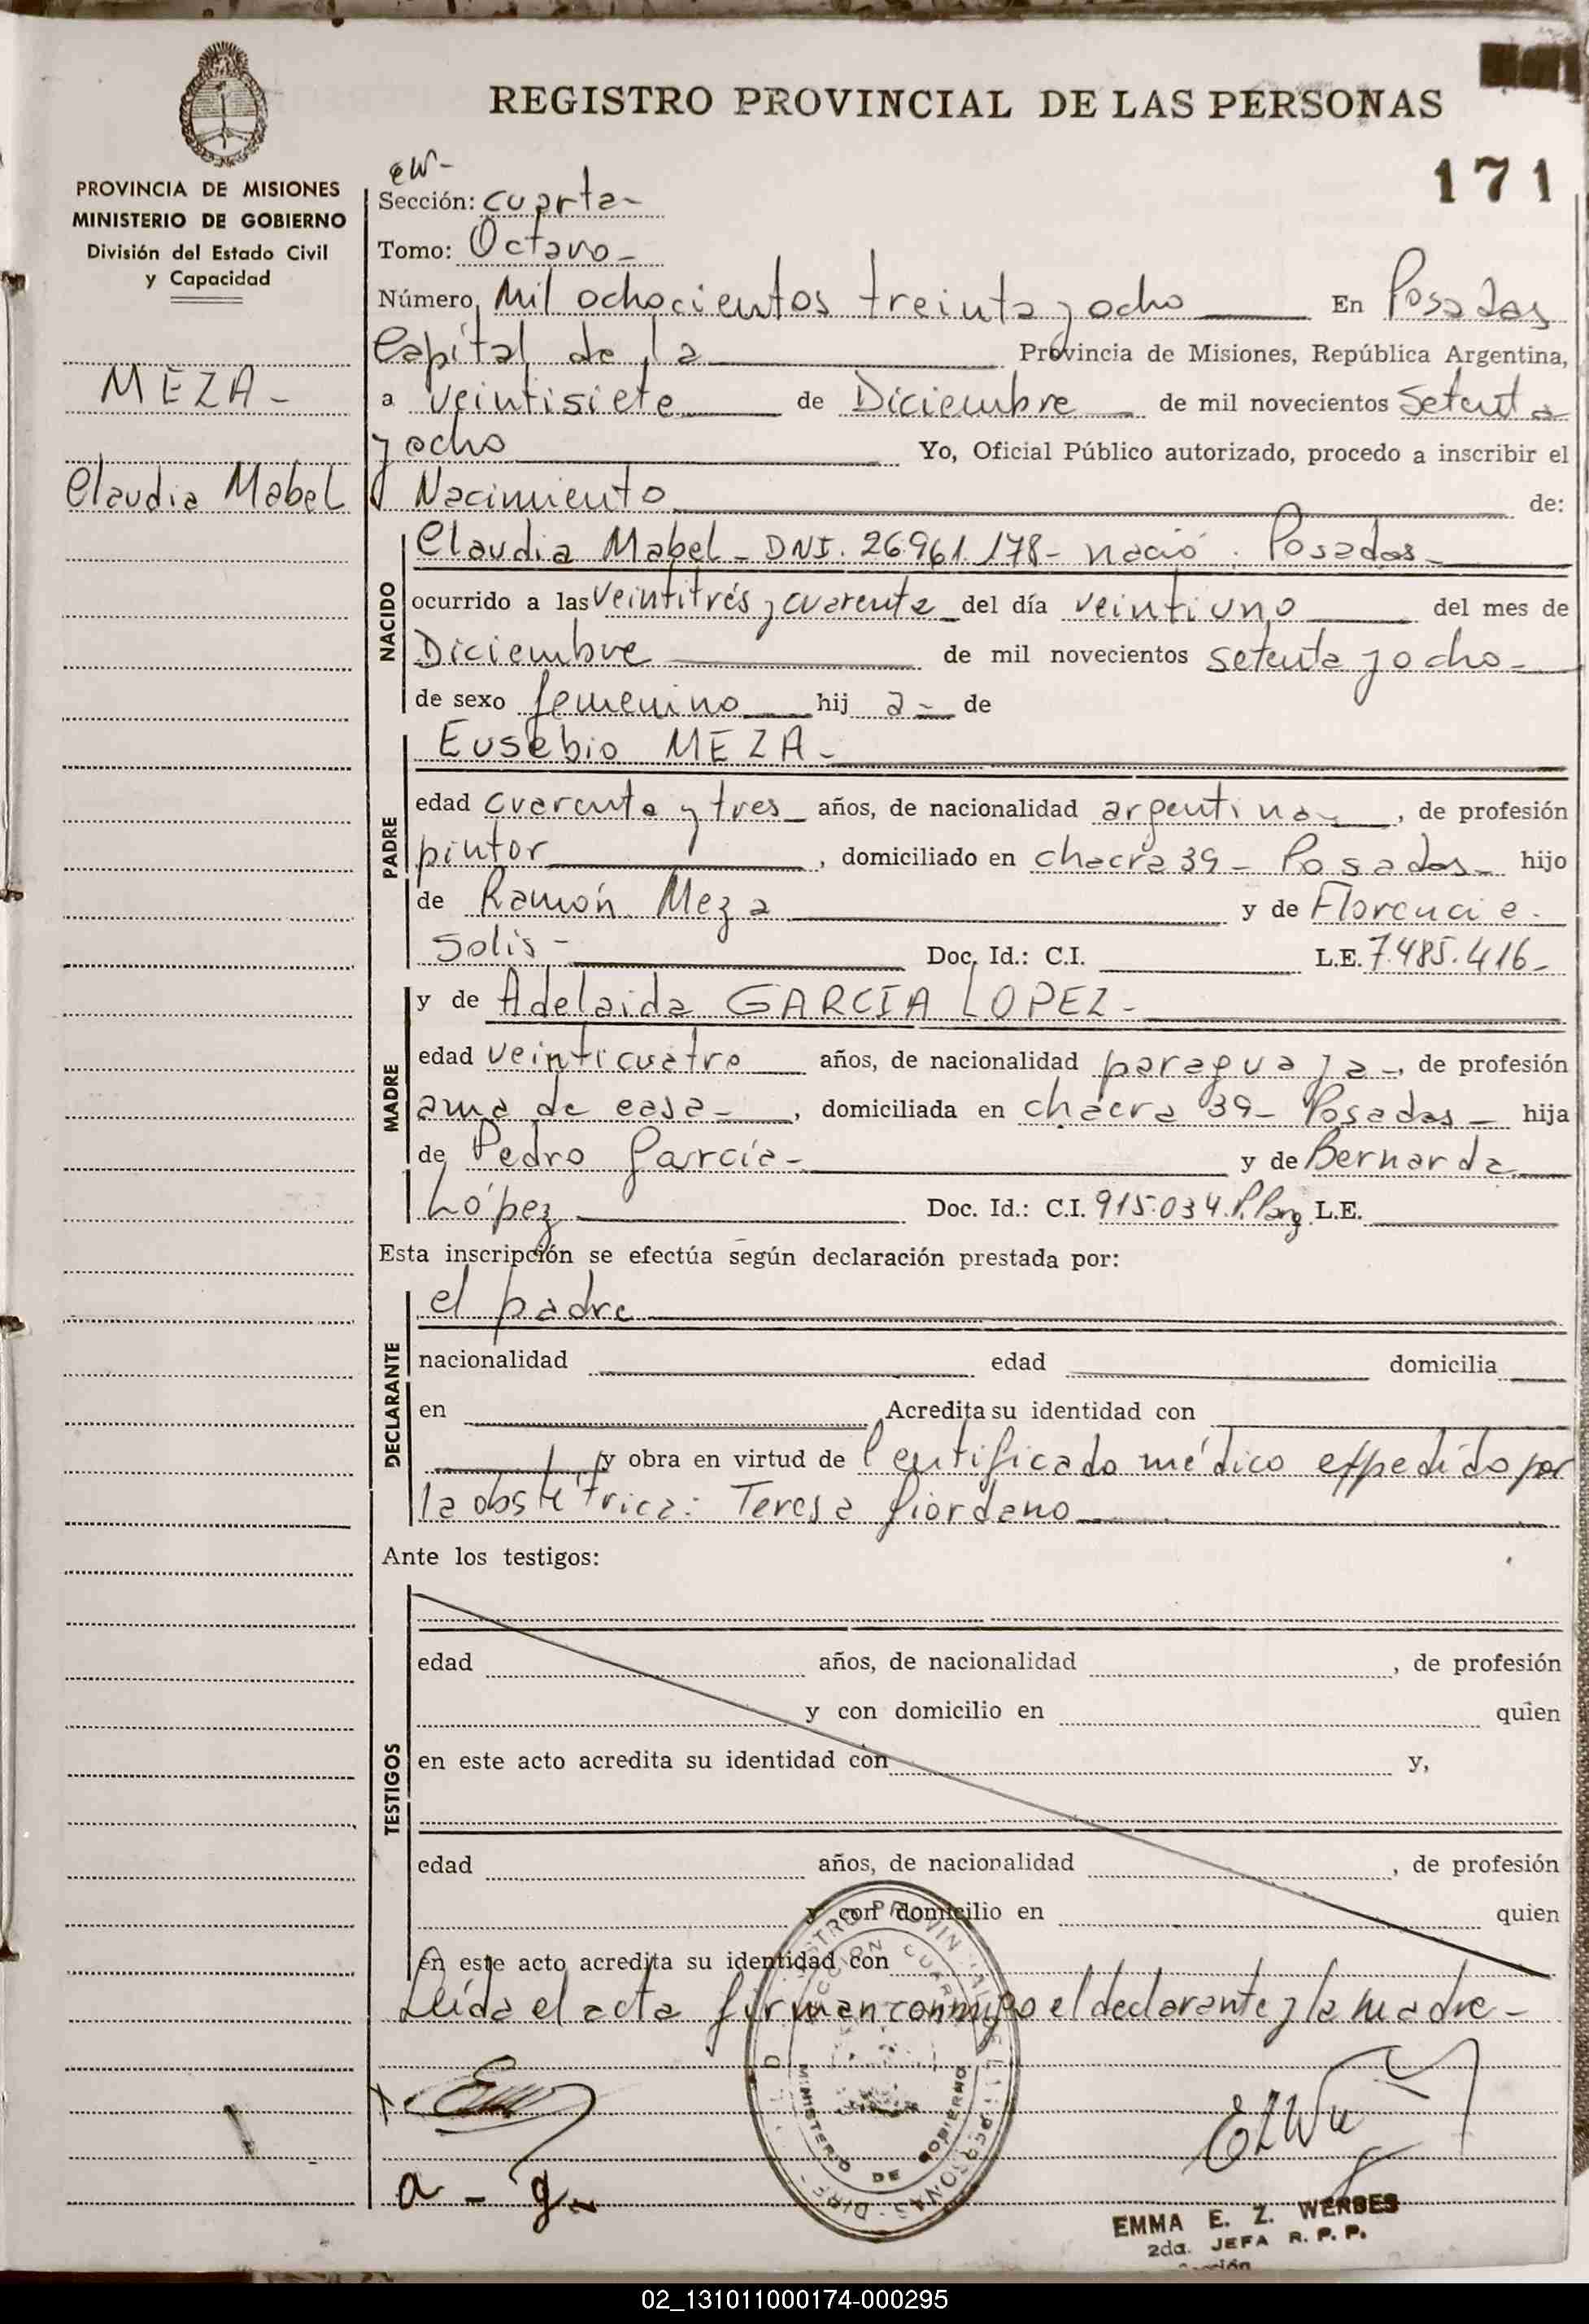 REGISTRO PROVINCIAL DE LAS PERSONAS
171
PROVINCIA DE MISIONES
MINISTERIO DE GOBIERNO
División del Estado Civil
y Capacidad
MEZA -
Claudia Mabel
ew-
Sección: cuarta-
Tomo: Octavo-
Número, Mil ochocientos treinta y ocho En Posadas
Capital de la Provincia de Misiones, República Argentina,
a veintisiete de Diciembre de mil novecientos setenta
y ocho Yo, Oficial Público autorizado, procedo a inscribir el
Nacimiento de:
NACIDO
Claudia Mabel - DNI. 26.961.178- nació. Posadas-
ocurrido a las veintitrés y cuarenta del día veintiuno del mes de
Diciembre de mil novecientos setenta y ocho-
de sexo femenino hij a- de
PADRE
Eusebio MEZA-
edad cuarenta y tres años, de nacionalidad argentina-, de profesión
pintor, domiciliado en chacra 39- Posadas- hijo
de Ramón Meza y de Florencia
Solis- Doc. Id.: C.I. L.E. 7.485.416-
MADRE
y de Adelaida GARCIA LOPEZ-
edad veinticuatro años, de nacionalidad paraguaya-, de profesión
ama de casa-, domiciliada en chacra 39- Posadas- hija
de Pedro García- y de Bernarda
López Doc. Id.: C.I. 915.034.P.Parg. L.E.
Esta inscripción se efectúa según declaración prestada por:
DECLARANTE
el padre
nacionalidad edad domicilia
en Acredita su identidad con
y obra en virtud de Certificado médico expedido por
la obstétrica: Teresa Giordano
Ante los testigos:
TESTIGOS
edad años, de nacionalidad , de profesión
y con domicilio en quien
en este acto acredita su identidad con y,
edad años, de nacionalidad , de profesión
y con domicilio en quien
en este acto acredita su identidad con
Leída el acta firman conmigo el declarante y la madre-
MINISTERIO DE GOBIERNO
a - g
EMMA E. Z. WERBES
2da. JEFA R. P. P.
02_131011000174-000295